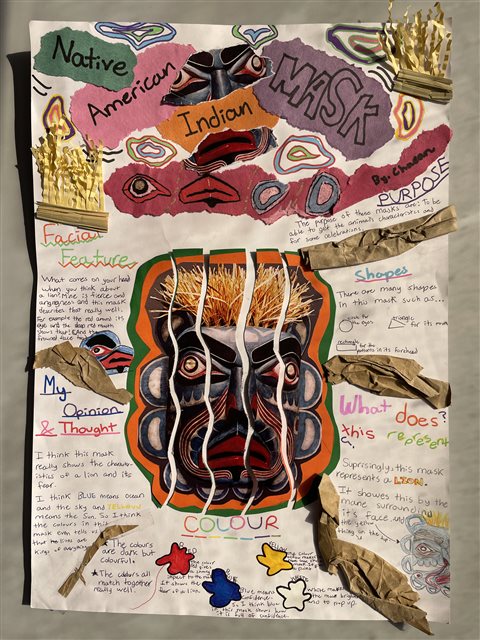 Native
American
Indian
MASK
By: Chasan
PURPOSE
The purpose of these masks are: To be
able to get the animals characteristics and
for some celebrations.
Facial
Feature
What comes on your head
when you think about
a lion? Mine is fierce and
angryness and this mask
describes that really well.
For example the red around its
eye and the deep red mouth
shows that! And the
frowned face
Shapes
There are many shapes
in this mask such as...
for
the eyes
triangle
for its
rectangle
for the
patterns in its forehead
My
Opinion
& Thought
I think this mask
really shows the characte-
ristics of a lion and its
fear.
I think BLUE means ocean
and the sky and YELLOW
means the Sun. So I think
the colours in this
mask even tells us
that the lions are
kings of everything
What does
this represent
?
Suprisingly, this mask
represents a LION.
It showes this by the
mane surrounding
it's face. And
the yellow
thing on the
COLOUR
★ The colours
are dark but
colourful.
★ The colours all
match together
really well.
RED
It shows the
fear of a lion.
Blue means
confidence.
So I think blue
in this mask shows how
it is full of confidence.
White makes
the more bright
and to pop up.